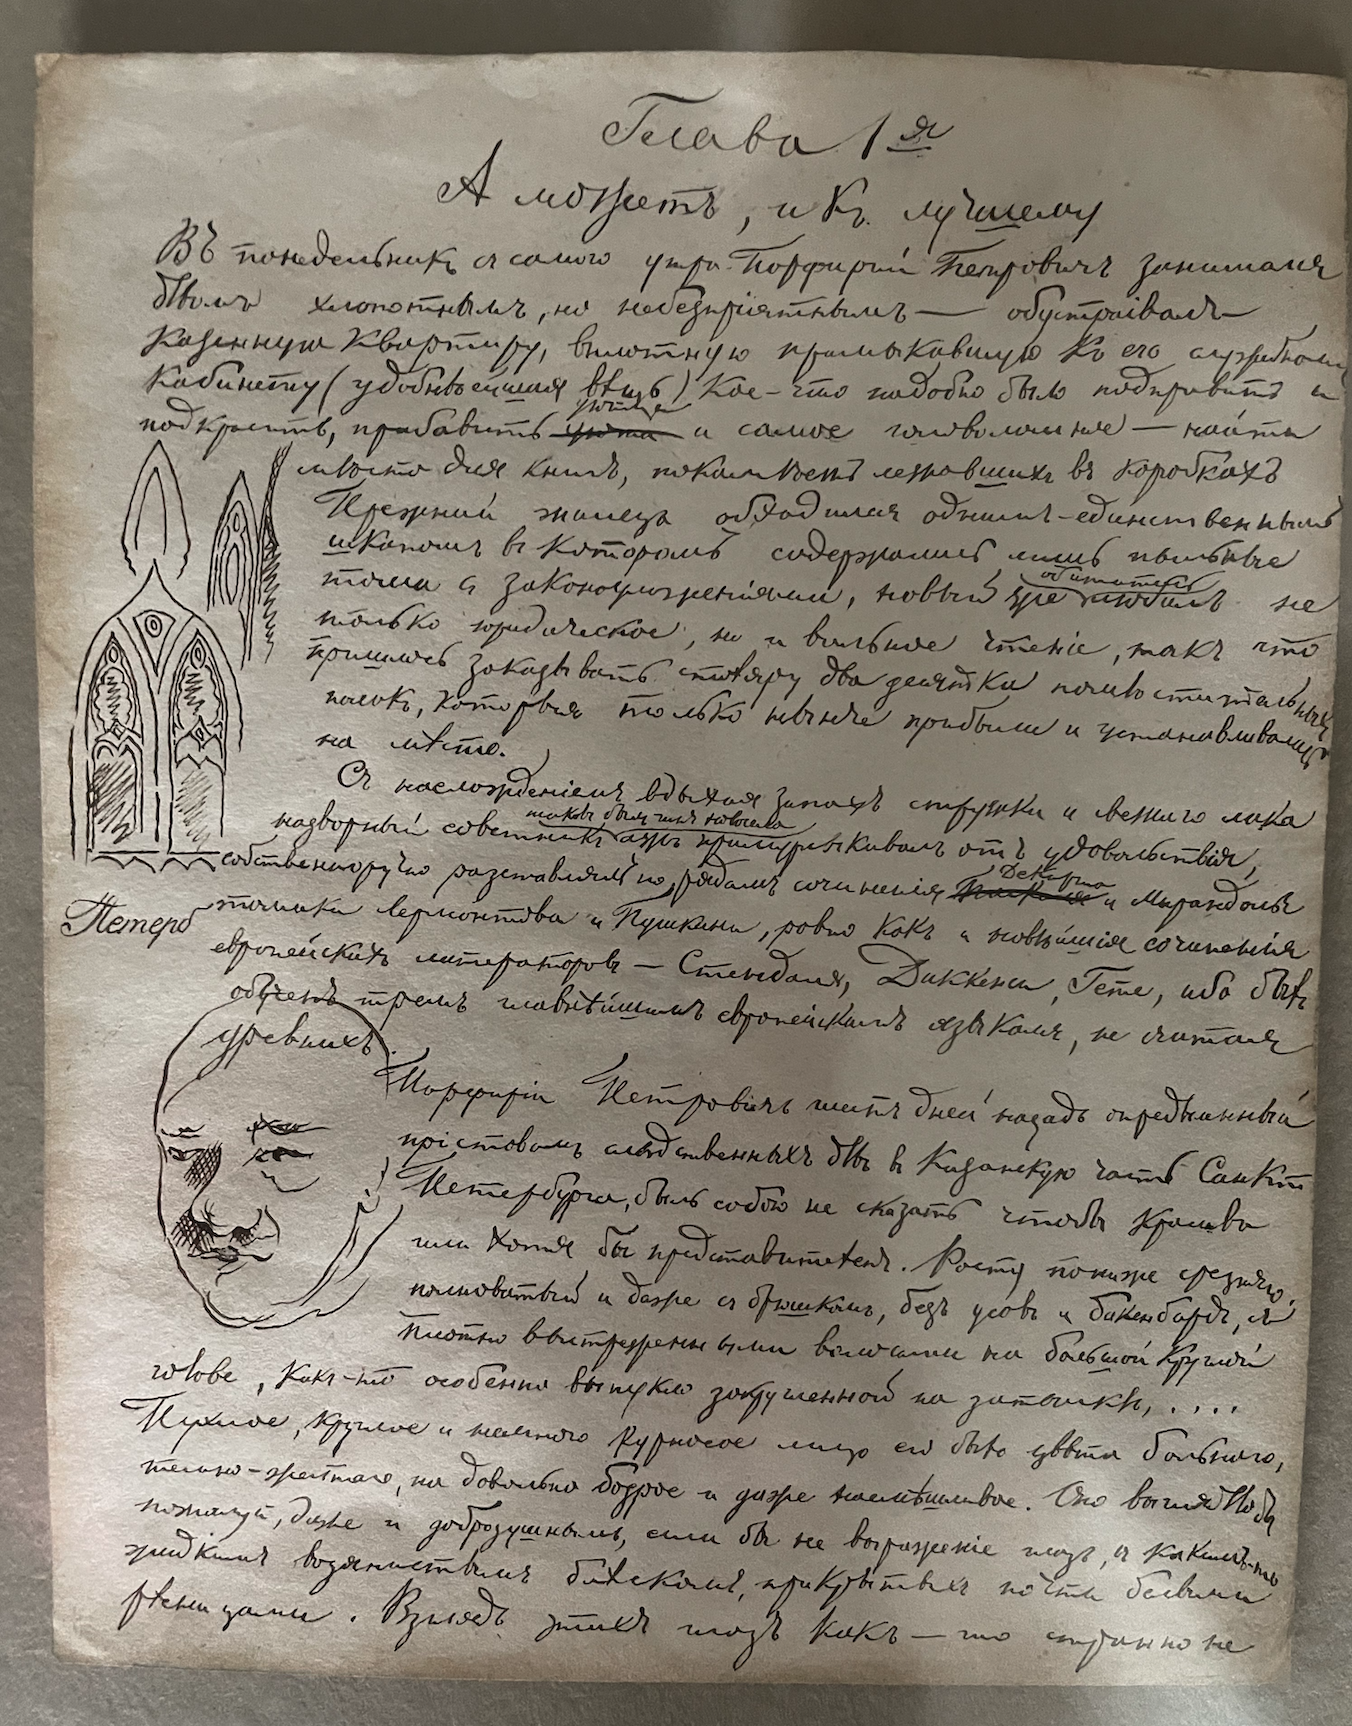 Глава 1я
А можетъ, и къ лучшему
Въ понедельникъ съ самого утра Порфирий Петровичъ занимался
дѣломъ хлопотнымъ, но небезпріятнымъ — обустраівалъ
казенную квартиру, вплотную примыкавшую къ его служебному
кабинету (удобнѣйшая вѣщь) Кое-что надобно было подправить и
уютца
подкрасить, прибавить уюта и самое головоломное — найти
мѣсто для книгъ, покамѣстъ лежавшихъ въ коробкахъ
Прежний жилецъ обходился однимъ-единственнымъ
шкапомъ въ которомъ содержались лишь пыльные
обитатель
тома съ законоуложеніями, новый же любилъ не
только юридическое, но и вольное чтеніе, такъ что
пришлось заказывать столяру два десятка полѡстительныхъ
полокъ, которыя только нынче прибыли и устанавливались
на мѣсто.
Съ наслождениемъ вдыхая запахъ стружки и свежего лака
таковъ былъ чинъ новосела
надворный советникъ ажъ прижмуривалъ отъ удовольствія,
собственноручно разставляя по рядамъ сочинения
Декарта
Паскаля и Мирандолы
Петерб
томики Лермонтова и Пушкина, ровно какъ и новѣйшія сочиненія
европейскихъ литераторовъ — Стендаля, Диккенса, Гете, ибо былъ
обученъ тремъ главнѣйшимъ европейскимъ языкамъ, не считая
древнихъ.
Порфирій Петровичъ пять дней назадъ определенный
прiставомъ слѣдственныхъ дѣлъ въ Казанскую часть Санкт
Петербурга, былъ собою не сказать чтобы красивъ
или хотя бы представителенъ. Росту пониже среднего,
полноватый и даже съ брюшкомъ, безъ усовъ и бакенбардъ, съ
плотно выстриженными волосами на большой круглой
голове, какъ-то особенно выпукло закругленной на затылкѣ, ....
Пухлое, круглое и немного курносое лицо его было цвѣта больного,
темно-желтаго, но довольно бодрое и даже насмѣшливое. Оно выглядѣло бы
пожалуй, даже и добродушнымъ, если бы не выражение глазъ, съ какимъ-то
жидкимъ водянистымъ блескомъ, прикрытыхъ почти белыми
рѣсницами. Взглядъ этихъ глазъ какъ-то странно не